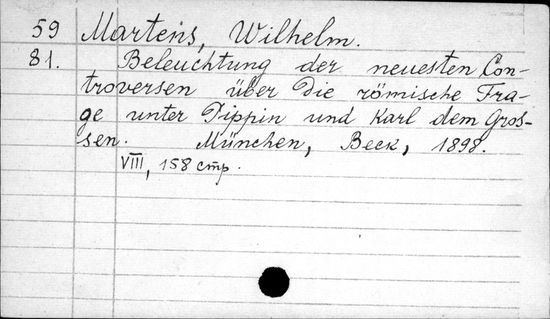 59 Martens, Wilhelm.
81. Beleuchtung der neuesten Con-
troversen über die römische Fra-
ge unter Pippin und Karl dem Gros-
sen. München, Beck, 1898.
VIII, 158 стр.